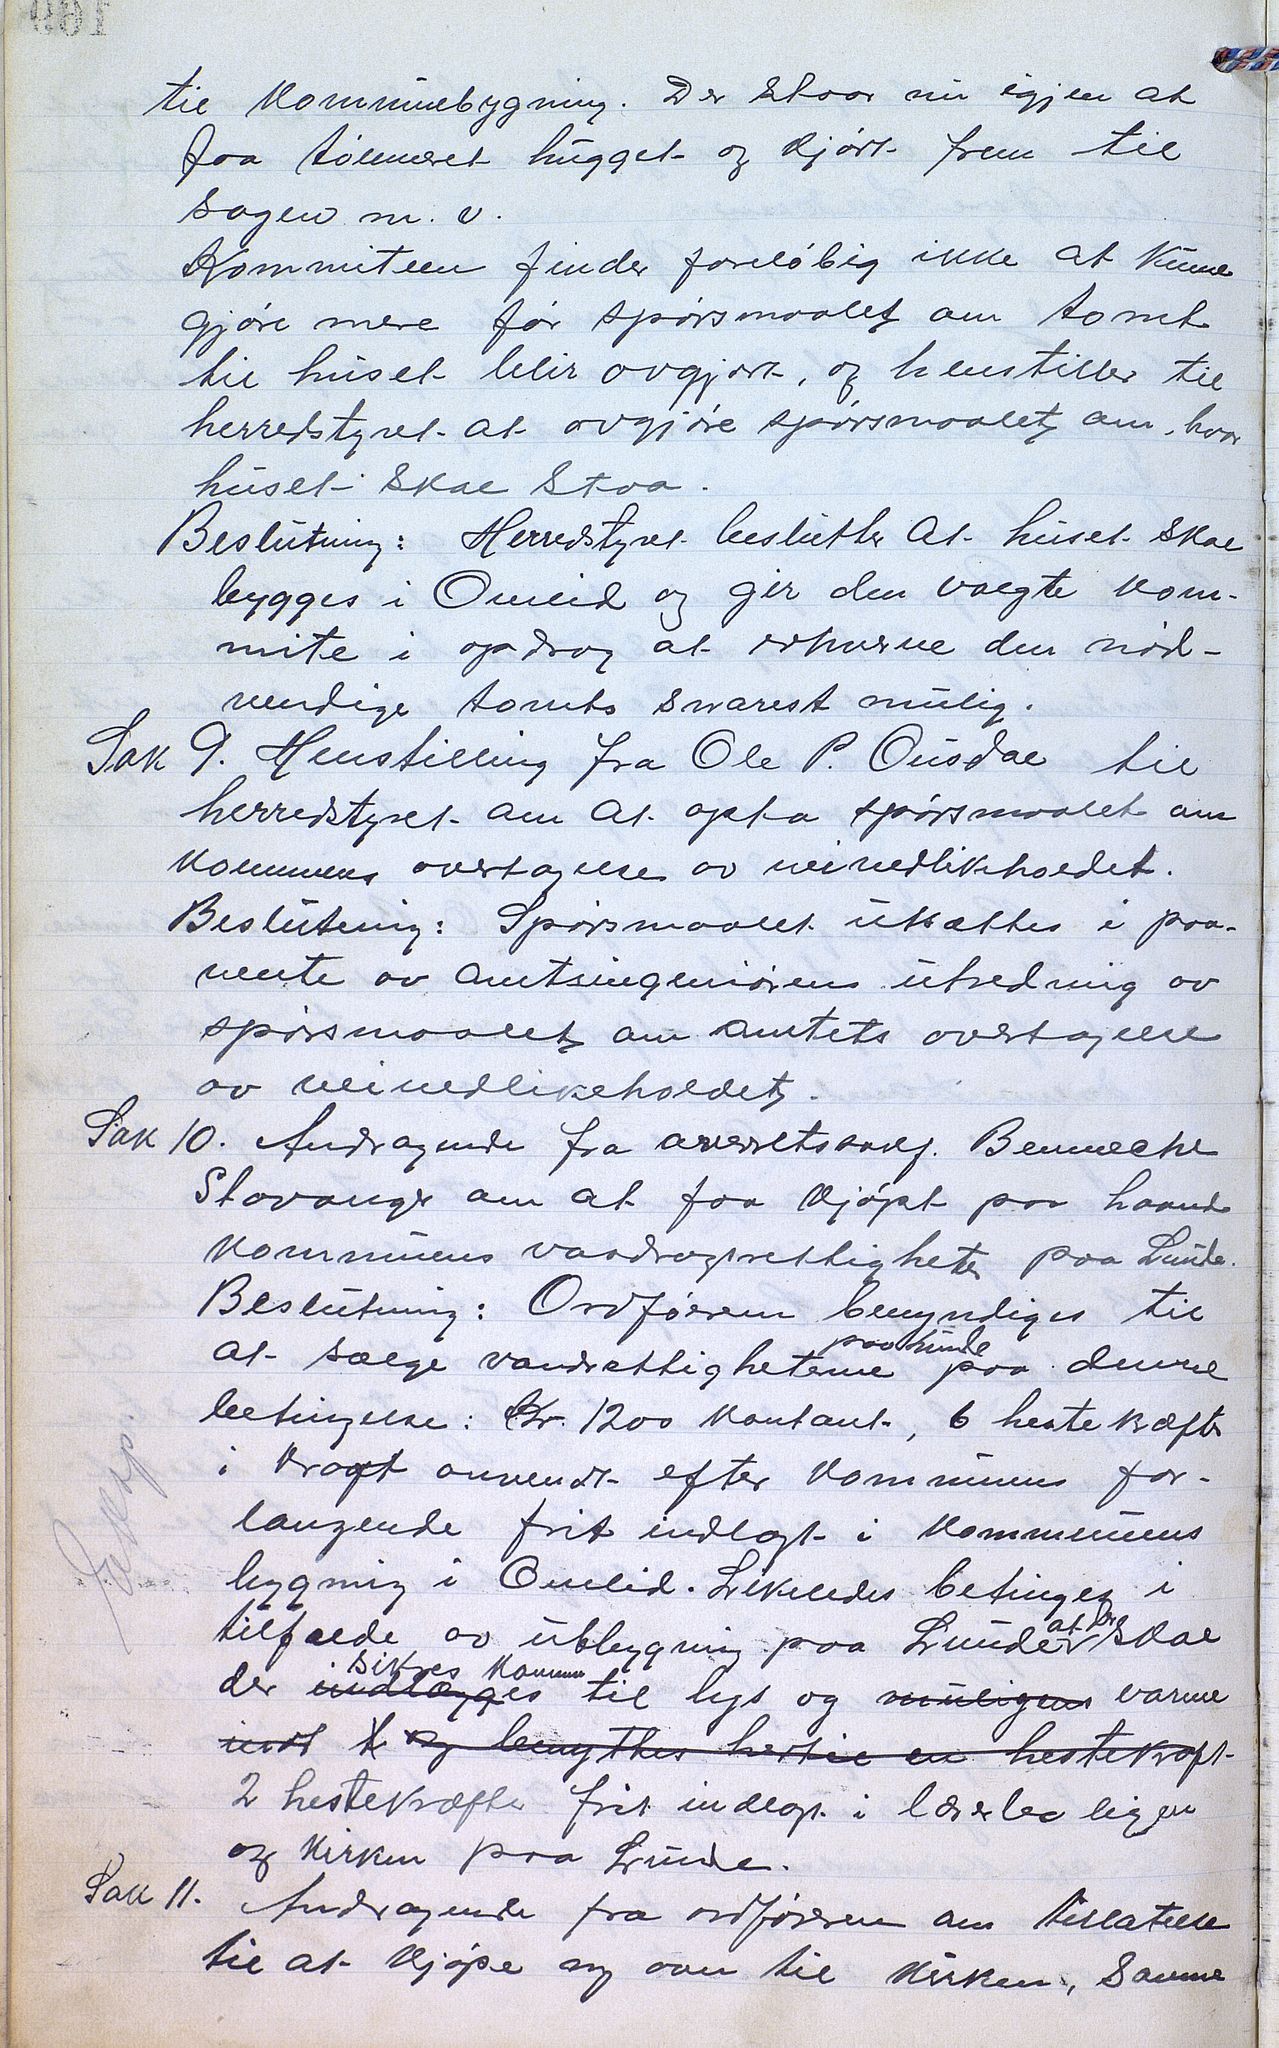 til Kommunebygning. Der staar nu igjen at
faa tømmeret hugget og kjørt frem til
sagen m. v.
Kommiteen finder foreløbig ikke at kunne
gjøre mere før spørsmaalet om tomt
til huset blir avgjort, og henstiller til
herredstyret at avgjøre spørsmaalet om, hvor
huset skal staa.
Beslutning: Herredstyret beslutter at huset skal
bygges i Omlid og gir den valgte kom-
mite i opdrag at erhverve den nød-
vendige tomts snarest mulig.
Sak 9. Henstilling fra Ole P. Ousdal til
herredstyret om at opta spørsmaalet om
kommunens overtagelse av veivedlikeholdet.
Beslutning: Spørsmaalet utsættes i paa-
vente av amtsingeniørens utredning av
spørsmaalet om amtets overtagelse
av veivedlikeholdet.
Sak 10. Andragende fra overretssakf. Benneche
Stavanger om at faa kjøpt paa haand
kommunens vasdragsrettigheter paa Lunde.
Beslutning: Ordføreren bemyndiges til
paa Lunde
at sælge vandrettigheterne paa denne
betingelse: Kr. 1200 kontant, 6 hestekræfter
i kraft anvendt efter kommunens for-
langende frit indlagt i kommunens
bygning i Omlid. Likeledes betinges i
at der
tilfælde av utbygning paa Lunde skal
sikres kommun
der indlægges til lys og muligens varme
indt og benyttes hertil en hestekraft
2 hestekræfter frit indlagt i lærerboligen
og kirken paa Lunde.
Sak 11. Andragende fra ordføreren om tillatelse
til at kjøpe ny ovn til kirken, samme